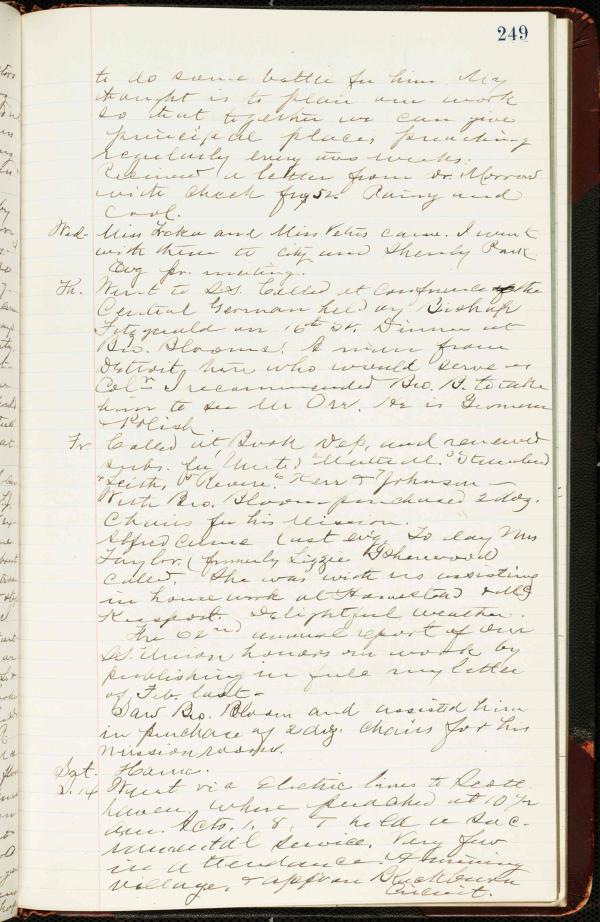 249
to do some battle for him. My
thought is to plan our work
so that together we can give
principal places preaching
regularly every two weeks.
Received a letter from Dr. Morrow
with check for 52. Rainy and
cool.
Wed- Miss and Miss came. I went
with them to city and Park
Evg pr. meeting.
Th. Went to S.S. Called at conference of the
Central German held by Bishop
Fitzgerald on 16th St. Dinner at
Bro. Blooms. A man from
Detroit here who would serve as
Colr. I recommended Bro. B. to take
him to see Mr Orr. He is German
Polish
Fr Called at Book Dep. and renewed
subs. for "United "Standard
Kerr & Johnson -
With Bro. Bloom purchased 2 doz.
Chairs for his Mission.
Alfred came last evg. To day Mrs
Taylor (formerly Lizzie
called. She was with us assisting
in house work at Homestead & Mc
Keesport. Delightful weather.
The 62nd annual report of our
S.S. Union honors our work by
publishing in full my letter
of Feb. last -
Saw Bro. Bloom and assisted him
in purchase of 2 doz. chairs for his
mission rooms.
Sat. Home.
S. 14 Went via Electric lines to Scott
haven, where preached at 10 1/2
am. Acts. 1. 8. & held a sac-
ramental service. Very few
in attendance. A mining
village, & app. on Blackburn
Circuit.